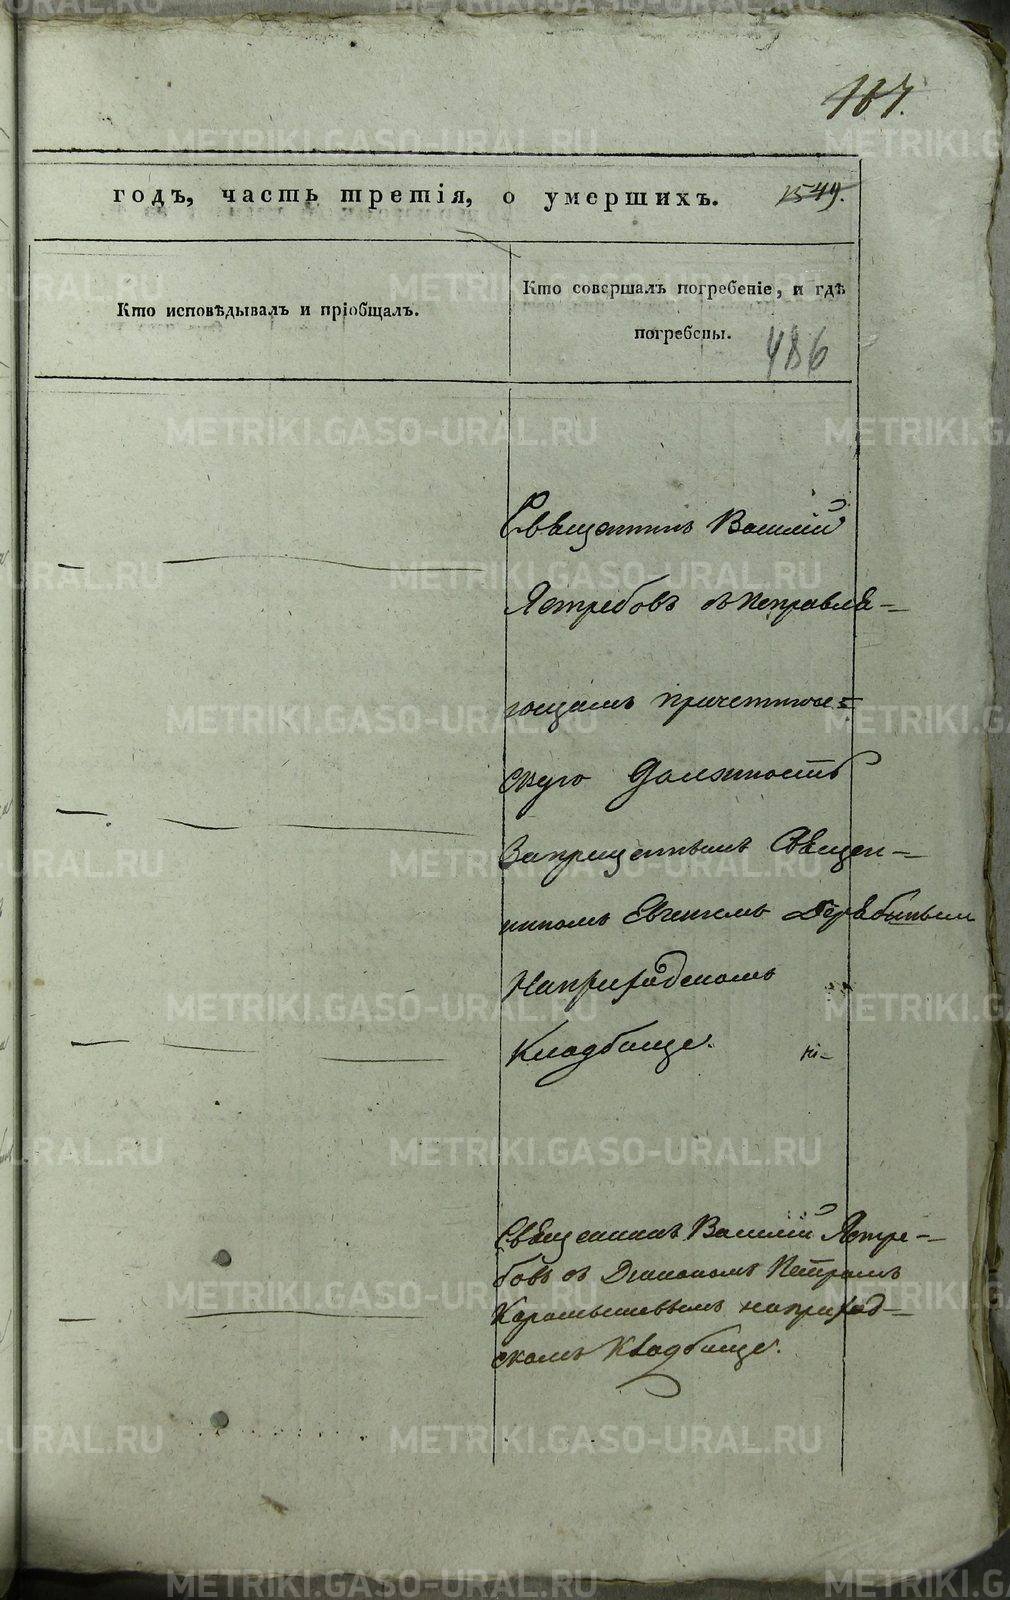 167.
годъ, часть третія, о умершихъ. 1549.
Кто исповѣдывалъ и пріобщалъ.
Кто совершалъ погребеніе, и гдѣ
погребены.
486
Священникъ Василій
Ястребовъ съ исправля-
ющимъ причетниче-
скую должность
Запрещеннымъ Священ-
никомъ Евгеніемъ
Наприходскомъ
Кладбище.
Священникъ Василій Ястре-
бовъ съ Діакономъ Петромъ
Карамышевымъ наприход-
скомъ Кладбище.
METRIKI.GASO-URAL.RU